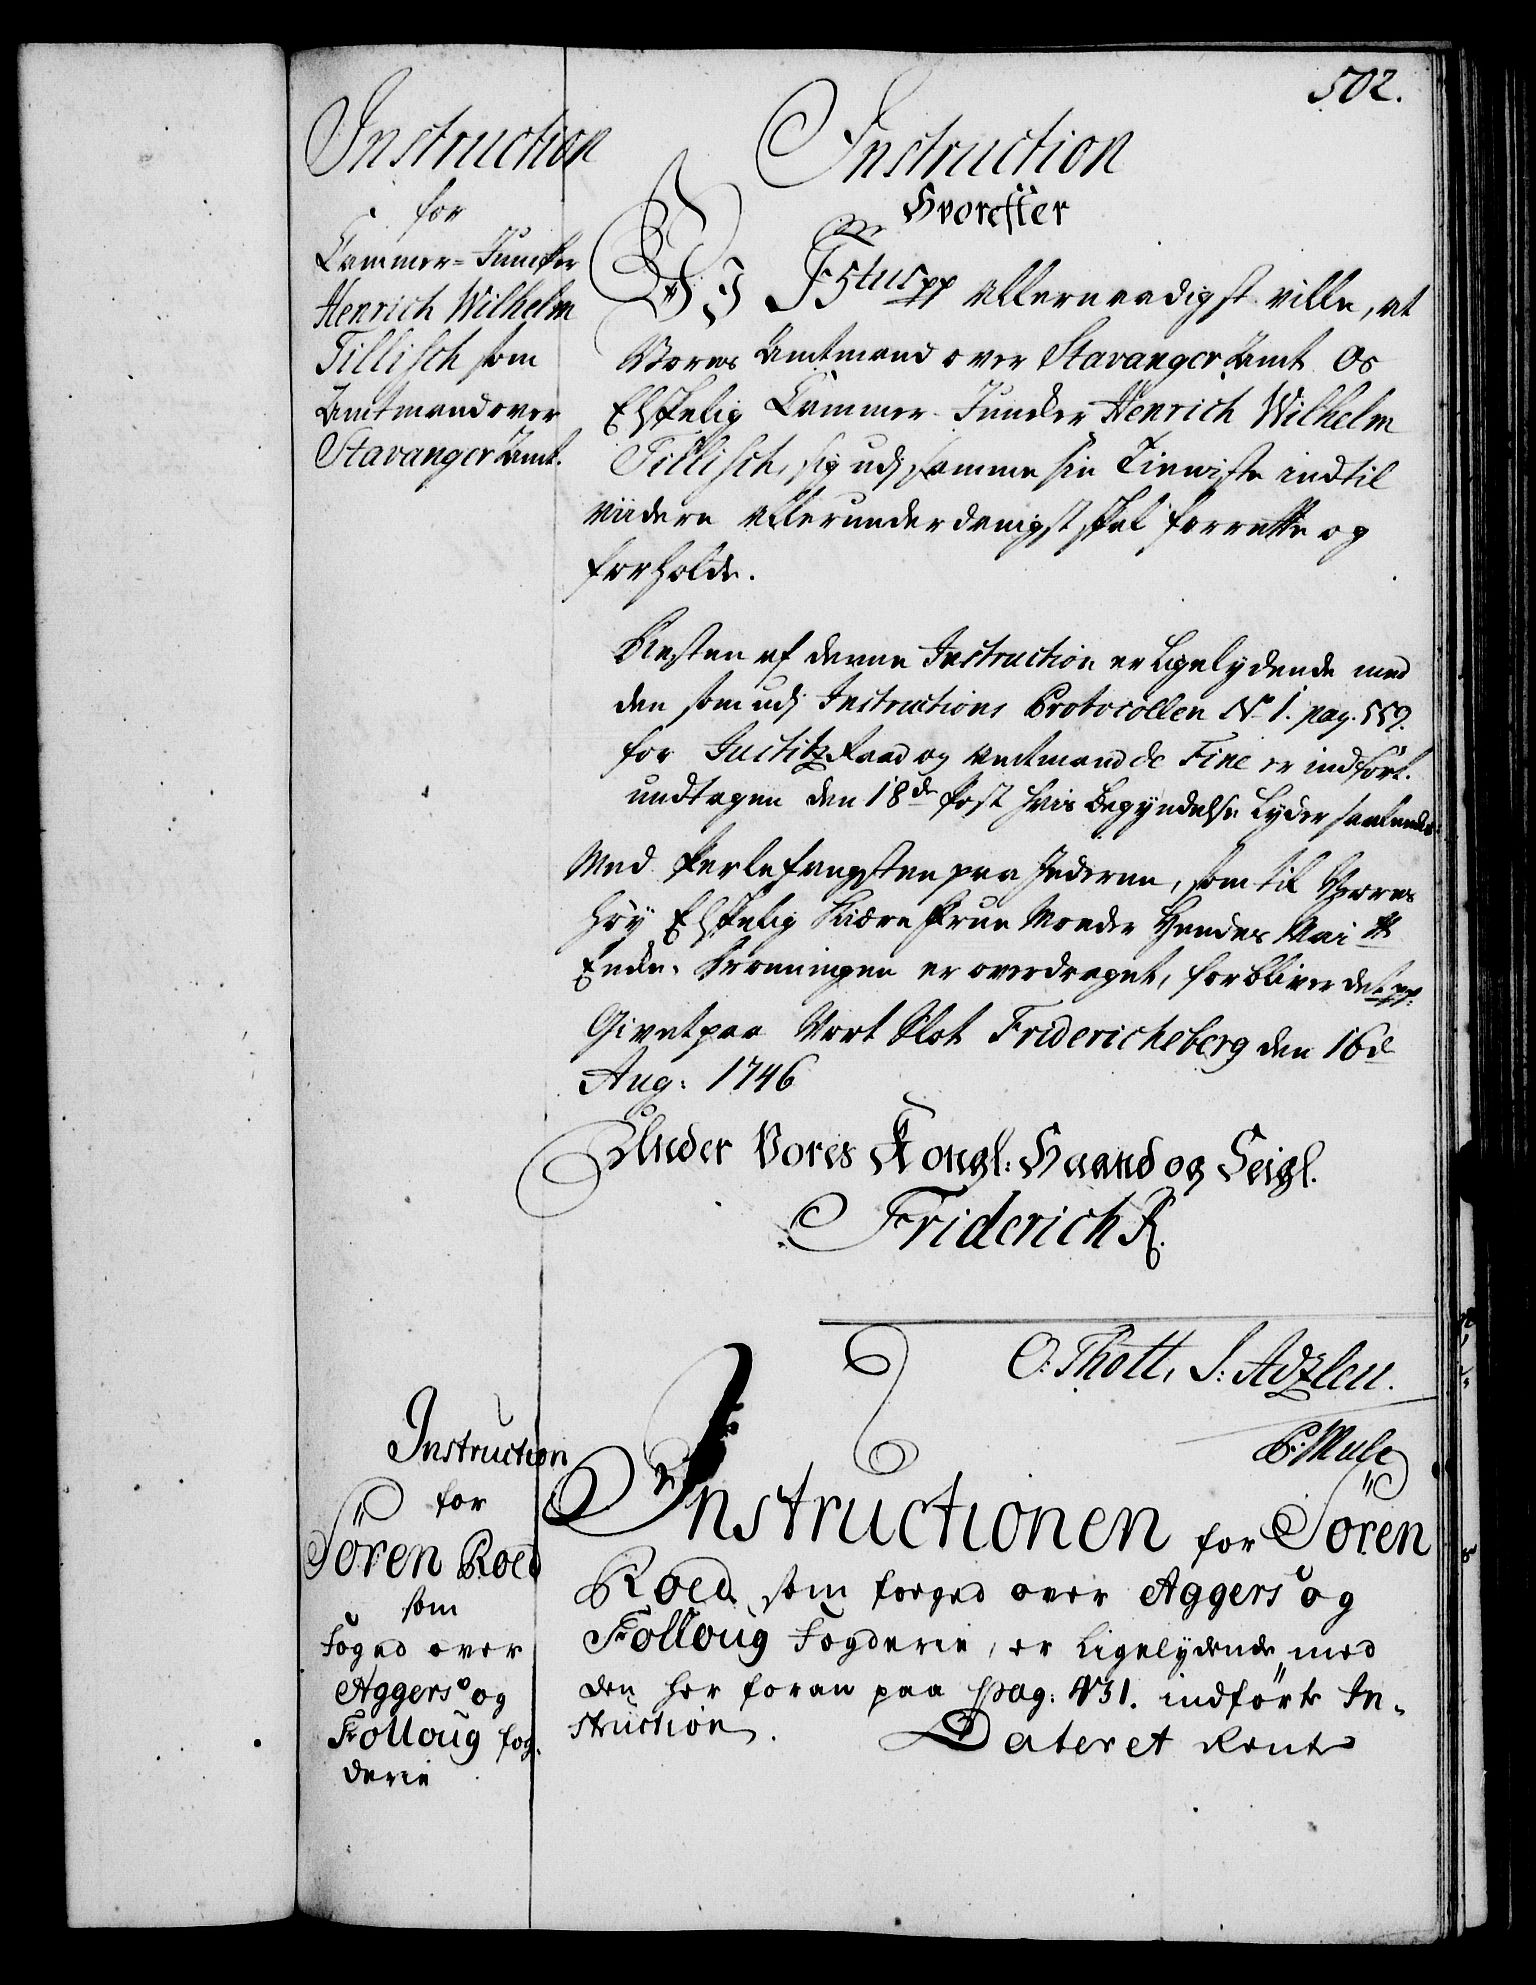 502.
Instruction
for
Cammer-Juncker
Henrich Wilhelm
Tillisch som
Amtmand over
Stavanger Amt.
Instruction
Hvorefter
Wi F5tus pp allernaadigst ville, at
Vores Amtmand over Stavanger Amt Os
Elskelig Cammer-Juncker Henrich Wilhelm
Tillisch, sig udj samme sin Tieniste indtil
viidere allerunderdanigst skal forrette og
forholde.
Resten af denne Instruction er ligelydende med
den som udj Instructions Protocollen No 1. pag. 559.
for Justitz Raad og Amtmand de Fine er indført.
undtagen den 18de Post hvis Begyndelse lyder saaledes
Med Perlefangsten paa Jederen, som til Vores
Høy Elskelig Kiære Frue Moder Hendes Mai tt
Enke-Dronningen er overdraget, forbliver det pp:
Givet paa Vort Slot Friderichsberg den 16de
Aug: 1746
Under Vores Kongl: Haand og Seigl.
Friderich R.
O: Thott, S: Adzleu.
P: Mule
Instruction
for
Sören Roed
som
Foged over
Aggers og
Folloug fog-
derie
Instructionen for Sören
Roed som foeged over Aggers og
Folloug Fogderie, er ligelydende med
den her foran paa pag: 431. indförte In-
struction.
Dateret Rente